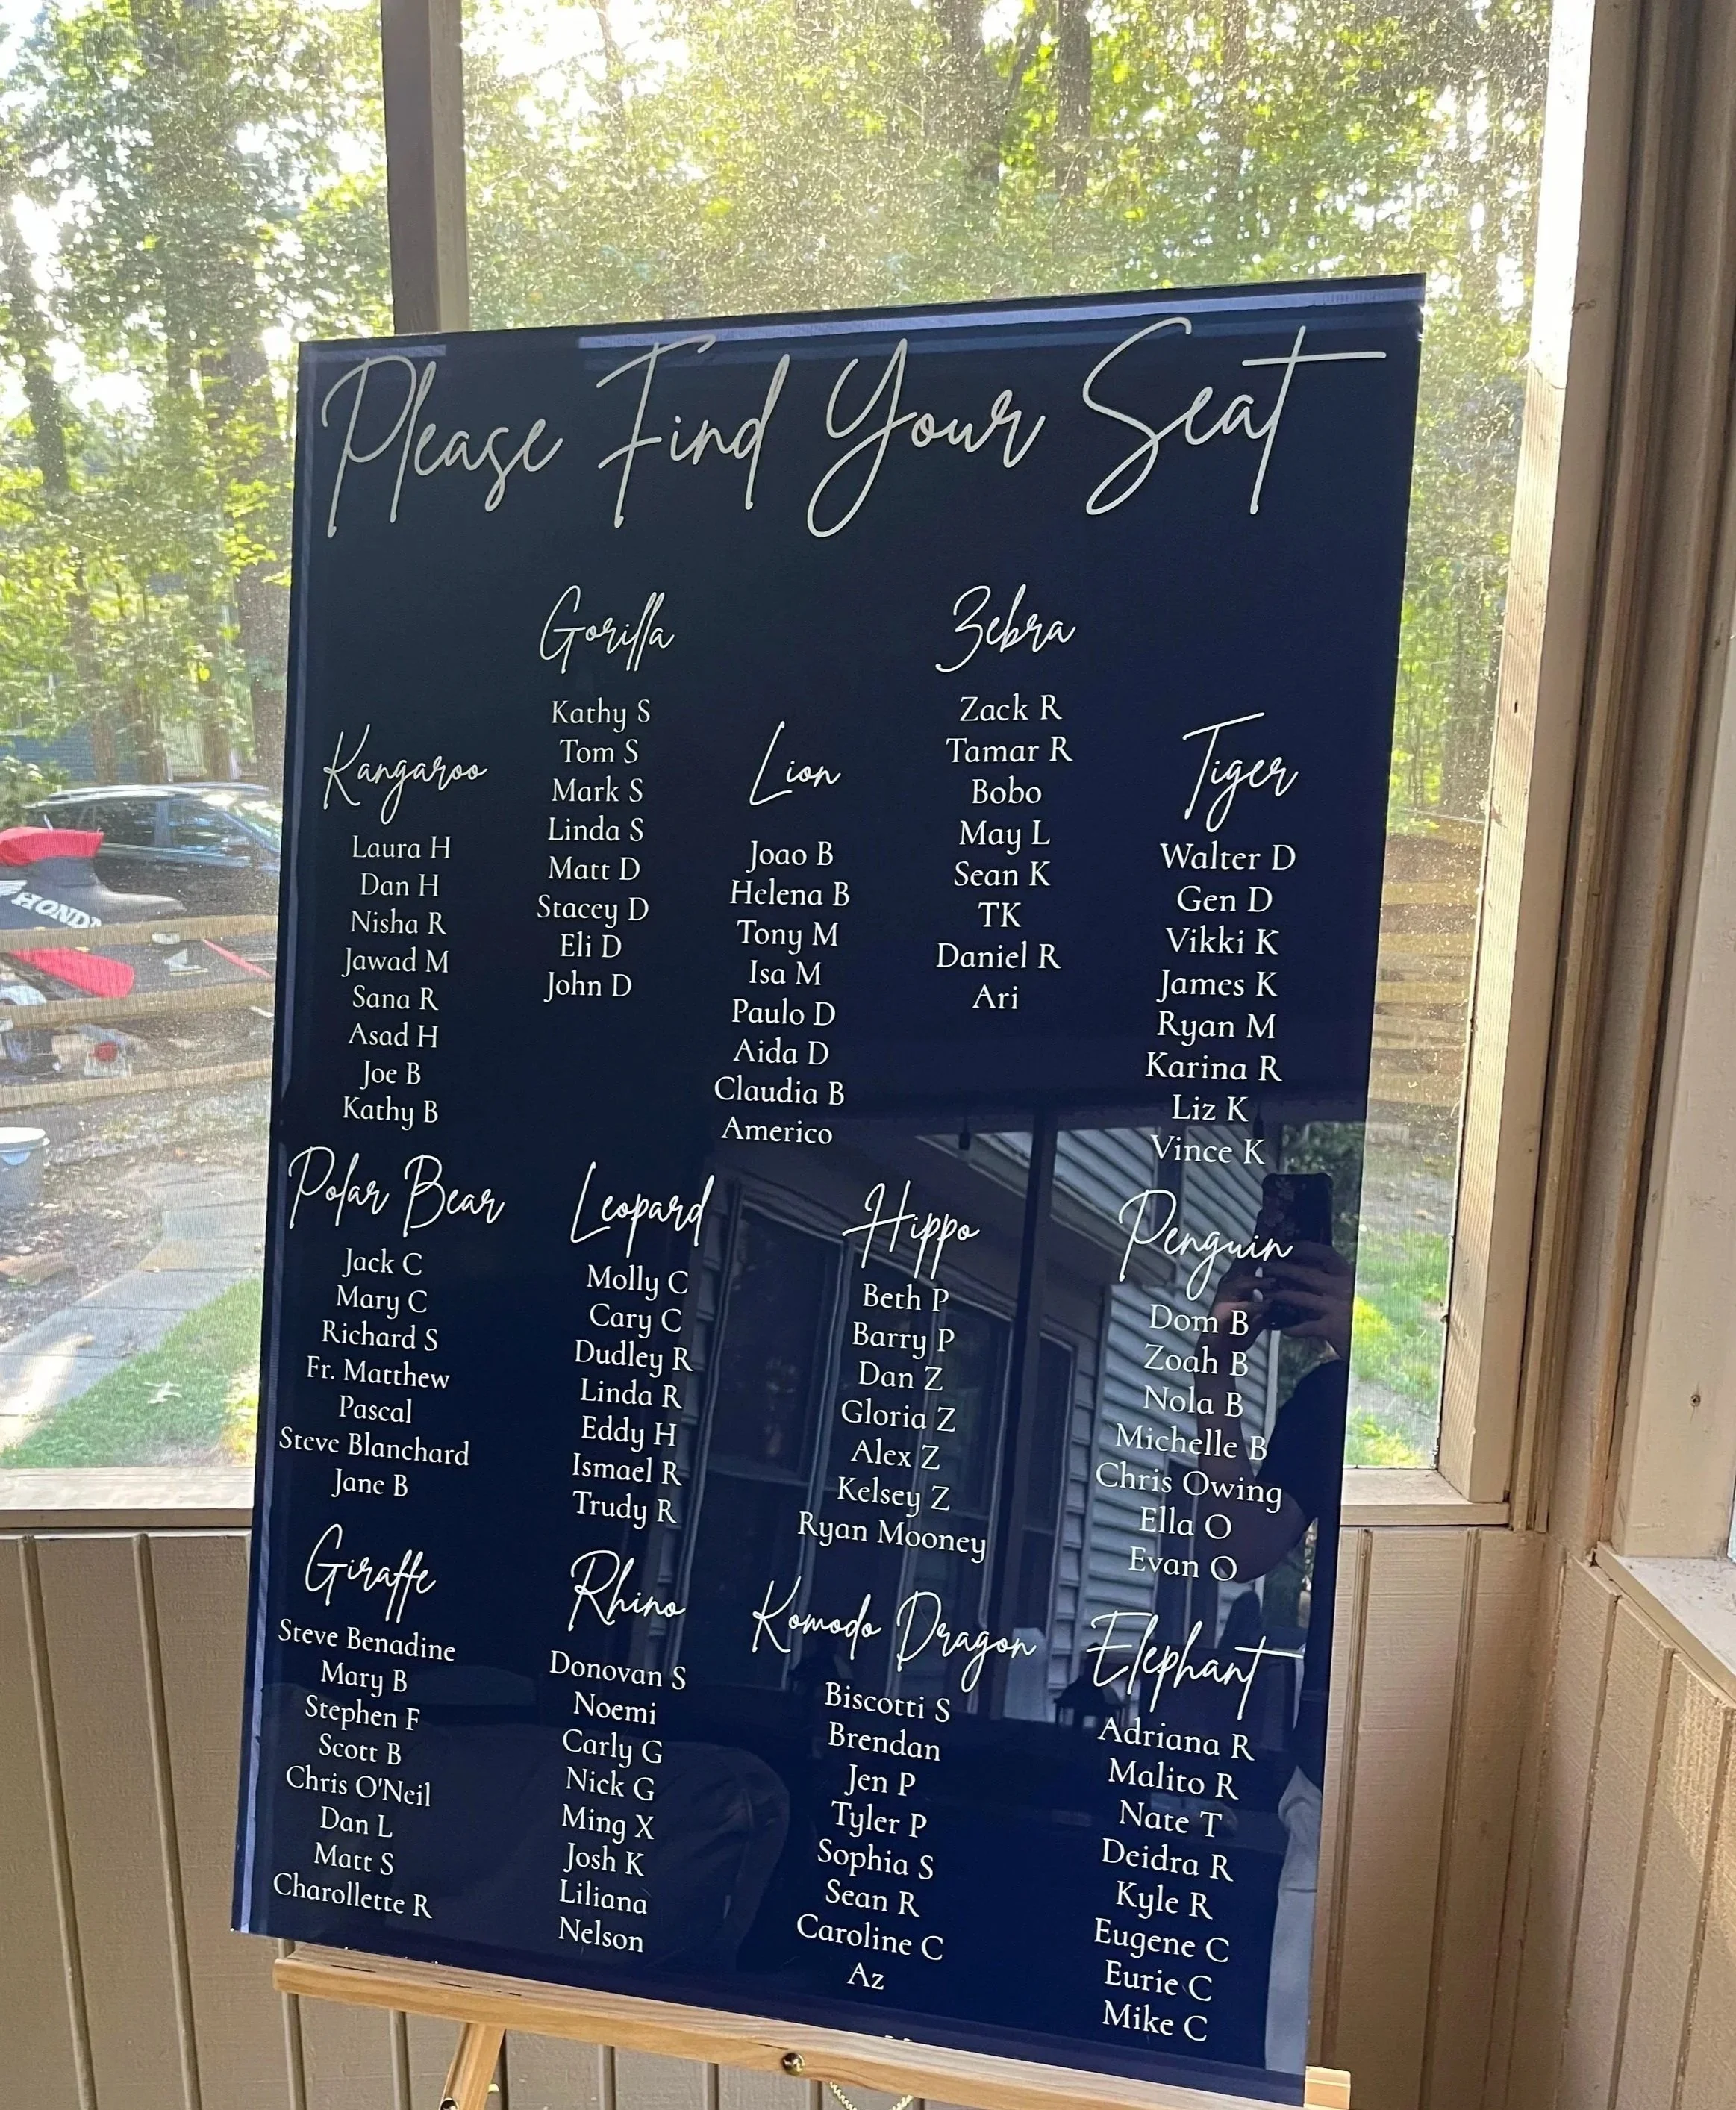 Please Find Your Seat
Gorilla
Kathy S
Tom S
Mark S
Linda S
Matt D
Stacey D
Eli D
John D
Zebra
Zack R
Tamar R
Bobo
May L
Sean K
TK
Daniel R
Ari
Kangaroo
Laura H
Dan H
Nisha R
Jawad M
Sana R
Asad H
Joe B
Kathy B
Lion
Joao B
Helena B
Tony M
Isa M
Paulo D
Aida D
Claudia B
Americo
Tiger
Walter D
Gen D
Vikki K
James K
Ryan M
Karina R
Liz K
Vince K
Polar Bear
Jack C
Mary C
Richard S
Fr. Matthew
Pascal
Steve Blanchard
Jane B
Leopard
Molly C
Cary C
Dudley R
Linda R
Eddy H
Ismael R
Trudy R
Hippo
Beth P
Barry P
Dan Z
Gloria Z
Alex Z
Kelsey Z
Ryan Mooney
Penguin
Dom B
Zoah B
Nola B
Michelle B
Chris Owing
Ella O
Evan O
Giraffe
Steve Benadine
Mary B
Stephen F
Scott B
Chris O'Neil
Dan L
Matt S
Charollette R
Rhino
Donovan S
Noemi
Carly G
Nick G
Ming X
Josh K
Liliana
Nelson
Komodo Dragon
Biscotti S
Brendan
Jen P
Tyler P
Sophia S
Sean R
Caroline C
Az
Elephant
Adriana R
Malito R
Nate T
Deidra R
Kyle R
Eugene C
Eurie C
Mike C
HONDA